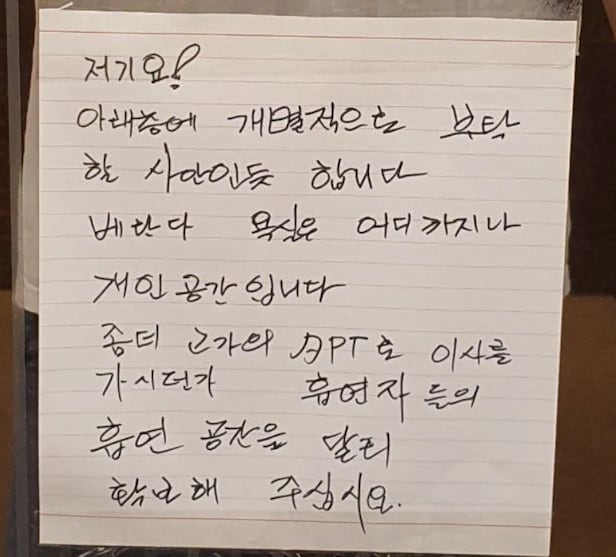 저기요!
아래층에 개별적으로 부탁
할 사안인듯 합니다
베란다 욕실은 어디까지나
개인공간입니다
좀더 고가의 APT로 이사를
가시던가 흡연자들의
흡연 공간을 달리
확보해 주십시요.